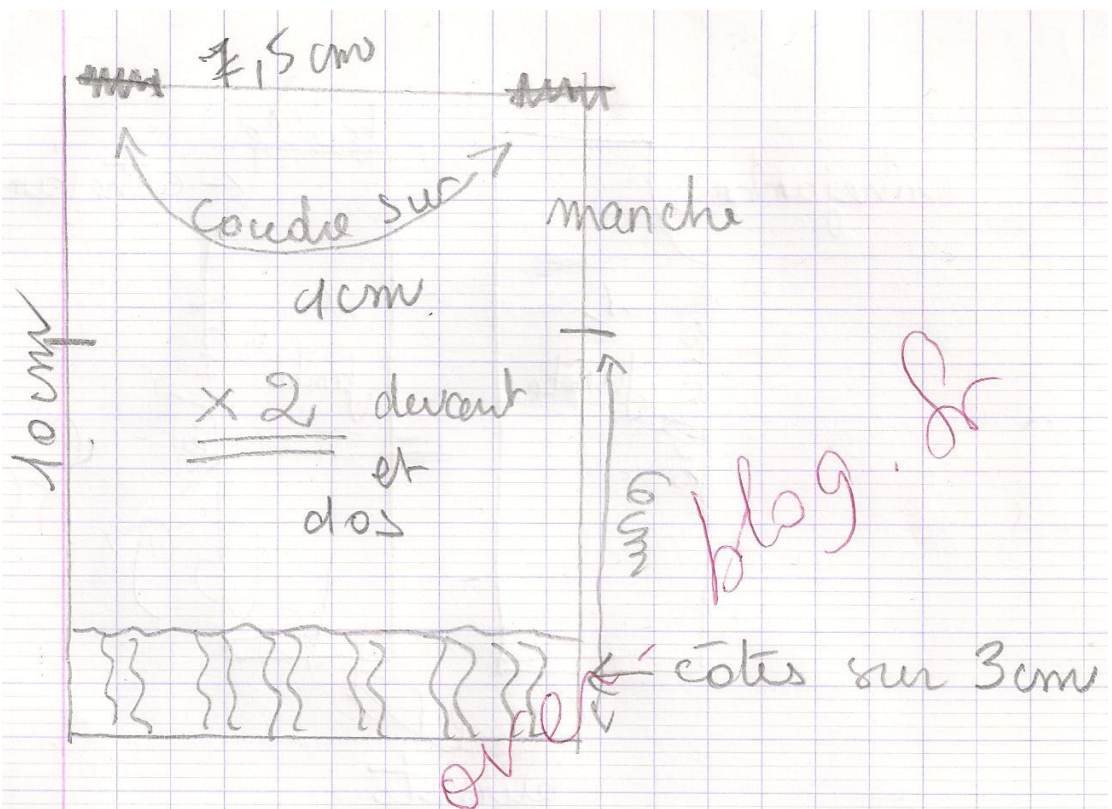 7,5 cm
coudre sur
1 cm.
manche
10 cm
x 2 devant
et
dos
6 cm
côtes sur 3 cm
blog.fr